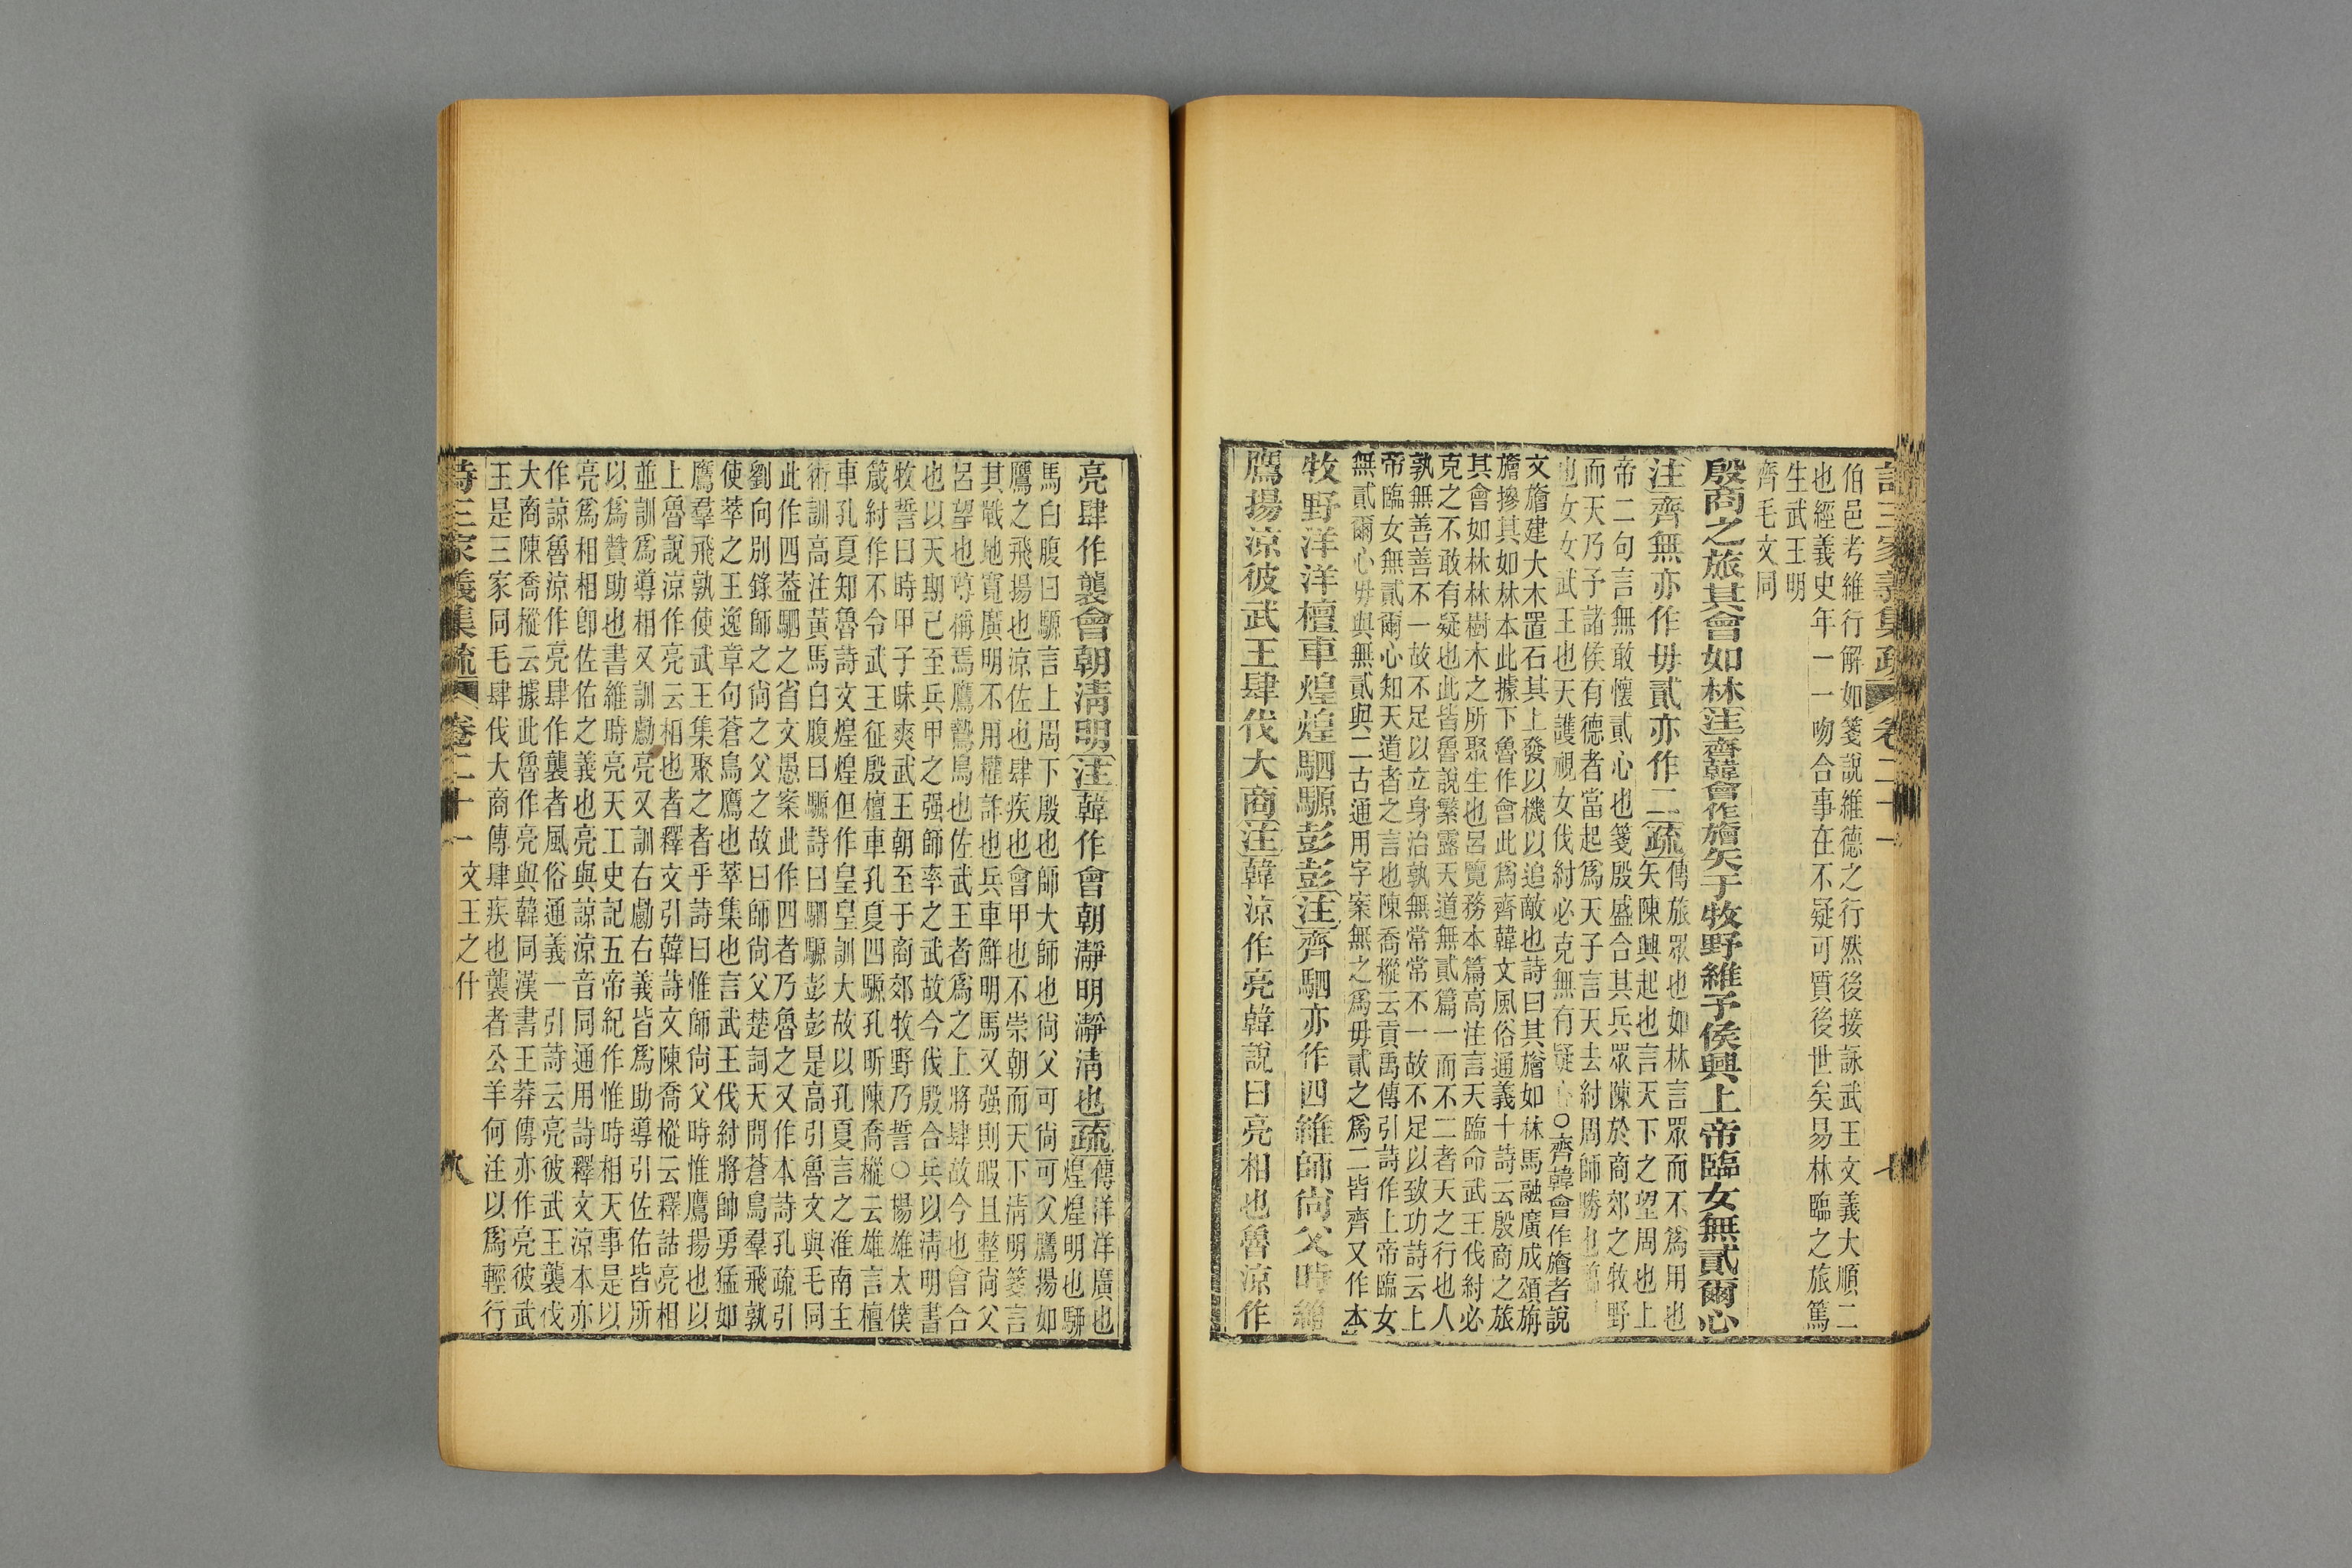 詩三家義集疏 卷二十一 七
伯邑考維行解如箋說維德之行然後接詠武王文義大順二
也經義史年一一吻合事在不疑可質後世矣易林臨之旅篤
生武王明
齊毛文同
殷商之旅其會如林注齊韓會作旝矢于牧野維予侯興上帝臨女無貳爾心
注齊無亦作毋貳亦作二疏
傳旅眾也如林言眾而不為用也
矢陳興起也言天下之望周也上
帝二句言無敢懷貳心也箋殷盛合其兵眾陳於商郊之牧野
而天乃予諸侯有德者當起為天子言天去紂周師勝也
也女女武王也天護視女伐紂必克無有疑心○齊韓會作旝者說
文旝建大木置石其上發以機以追敵也詩曰其旝如林馬融廣成頌旃
旝摻其如林本此據下魯作會此為齊韓文風俗通義十詩云殷商之旅
其會如林林樹木之所聚生也呂覽務本篇高注言天臨命武王伐紂必
克之不敢有疑也此皆魯說繁露天道無貳篇一而不二者天之行也人
孰無善善不一故不足以立身治孰無常常不一故不足以致功詩云上
帝臨女無貳爾心知天道者之言也陳喬樅云貢禹傳引詩作上帝臨女
無貳爾心毋與無貳與二古通用字案無之為毋貳之為二皆齊又作本
牧野洋洋檀車煌煌駟騵彭彭注齊駟亦作四維師尚父時維
鷹揚涼彼武王肆伐大商注韓涼作亮韓說曰亮相也魯涼作
亮肆作襲會朝清明注韓作會朝瀞明瀞清也疏
傳洋洋廣也
煌煌明也騵
馬白腹曰騵言上周下殷也師大師也尚父可尚可父鷹揚如
鷹之飛揚也涼佐也肆疾也會甲也不崇朝而天下清明箋言
其戰地寬廣明不用權詐也兵車鮮明馬又强則暇且整尚父
呂望也尊稱焉鷹鷙鳥也佐武王者為之上將肆故今也會合
也以天期已至兵甲之强師率之武故今伐殷合兵以清明書
牧誓曰時甲子昧爽武王朝至于商郊牧野乃誓○揚雄太僕
箴紂作不令武王征殷檀車孔夏四騵孔昕陳喬樅云雄言檀
車孔夏知魯詩文煌煌但作皇皇訓大故以孔夏言之淮南主
術訓高注黃馬白腹曰騵詩曰駟騵彭彭是高引魯文與毛同
此作四葢駟之省文愚案此作四者乃魯之又作本詩孔疏引
劉向別錄師之尚之父之故曰師尚父楚詞天問蒼鳥羣飛孰
使萃之王逸章句蒼鳥鷹也萃集也言武王伐紂將帥勇猛如
鷹羣飛孰使武王集聚之者乎詩曰惟師尚父時惟鷹揚也以
上魯說涼作亮云相也者釋文引韓詩文陳喬樅云釋詁亮相
並訓為導相又訓勴亮又訓右勴右義皆為助導引佐佑皆所
以為贊助也書維時亮天工史記五帝紀作惟時相天事是以
亮為相相卽佐佑之義也亮與諒涼音同通用詩釋文涼本亦
作諒魯涼作亮肆作襲者風俗通義一引詩云亮彼武王襲伐
大商陳喬樅云據此魯作亮與韓同漢書王莽傳亦作亮彼武
王是三家同毛肆伐大商傳肆疾也襲者公羊何注以為輕行
詩三家義集疏 卷二十一 文王之什 八